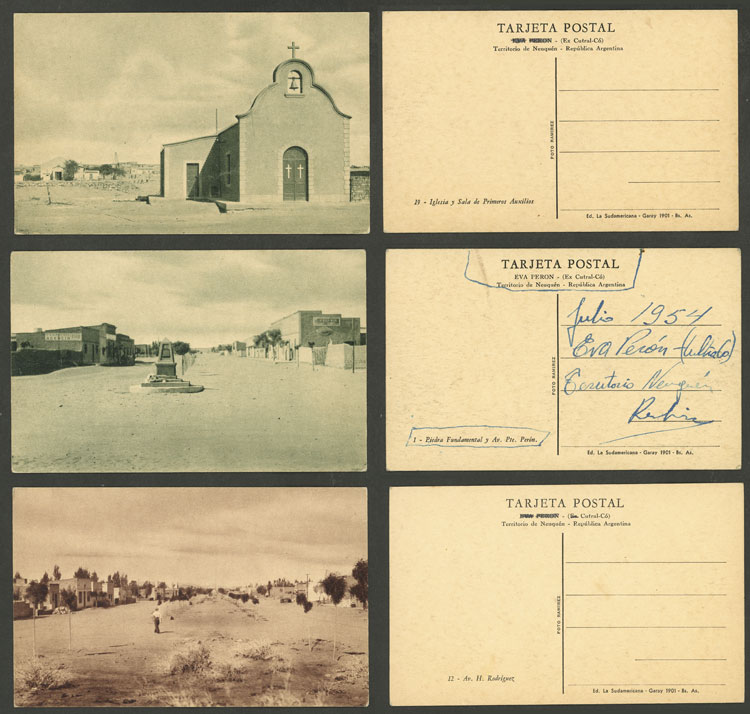 TARJETA POSTAL
EVA PERON - (Ex Cutral-Có)
Territorio de Neuquén - República Argentina
FOTO RAMIREZ
19 - Iglesia y Sala de Primeros Auxilios
Ed. La Sudamericana - Garay 1901 - Bs. As.
TARJETA POSTAL
EVA PERON - (Ex Cutral-Có)
Territorio de Neuquén - República Argentina
Julio 1954
Eva Perón -
Territorio Neuquén
FOTO RAMIREZ
1 - Piedra Fundamental y Av. Pte. Perón.
Ed. La Sudamericana - Garay 1901 - Bs. As.
TARJETA POSTAL
EVA PERON - (Ex Cutral-Có)
Territorio de Neuquén - República Argentina
FOTO RAMIREZ
12 - Av. H. Rodríguez
Ed. La Sudamericana - Garay 1901 - Bs. As.